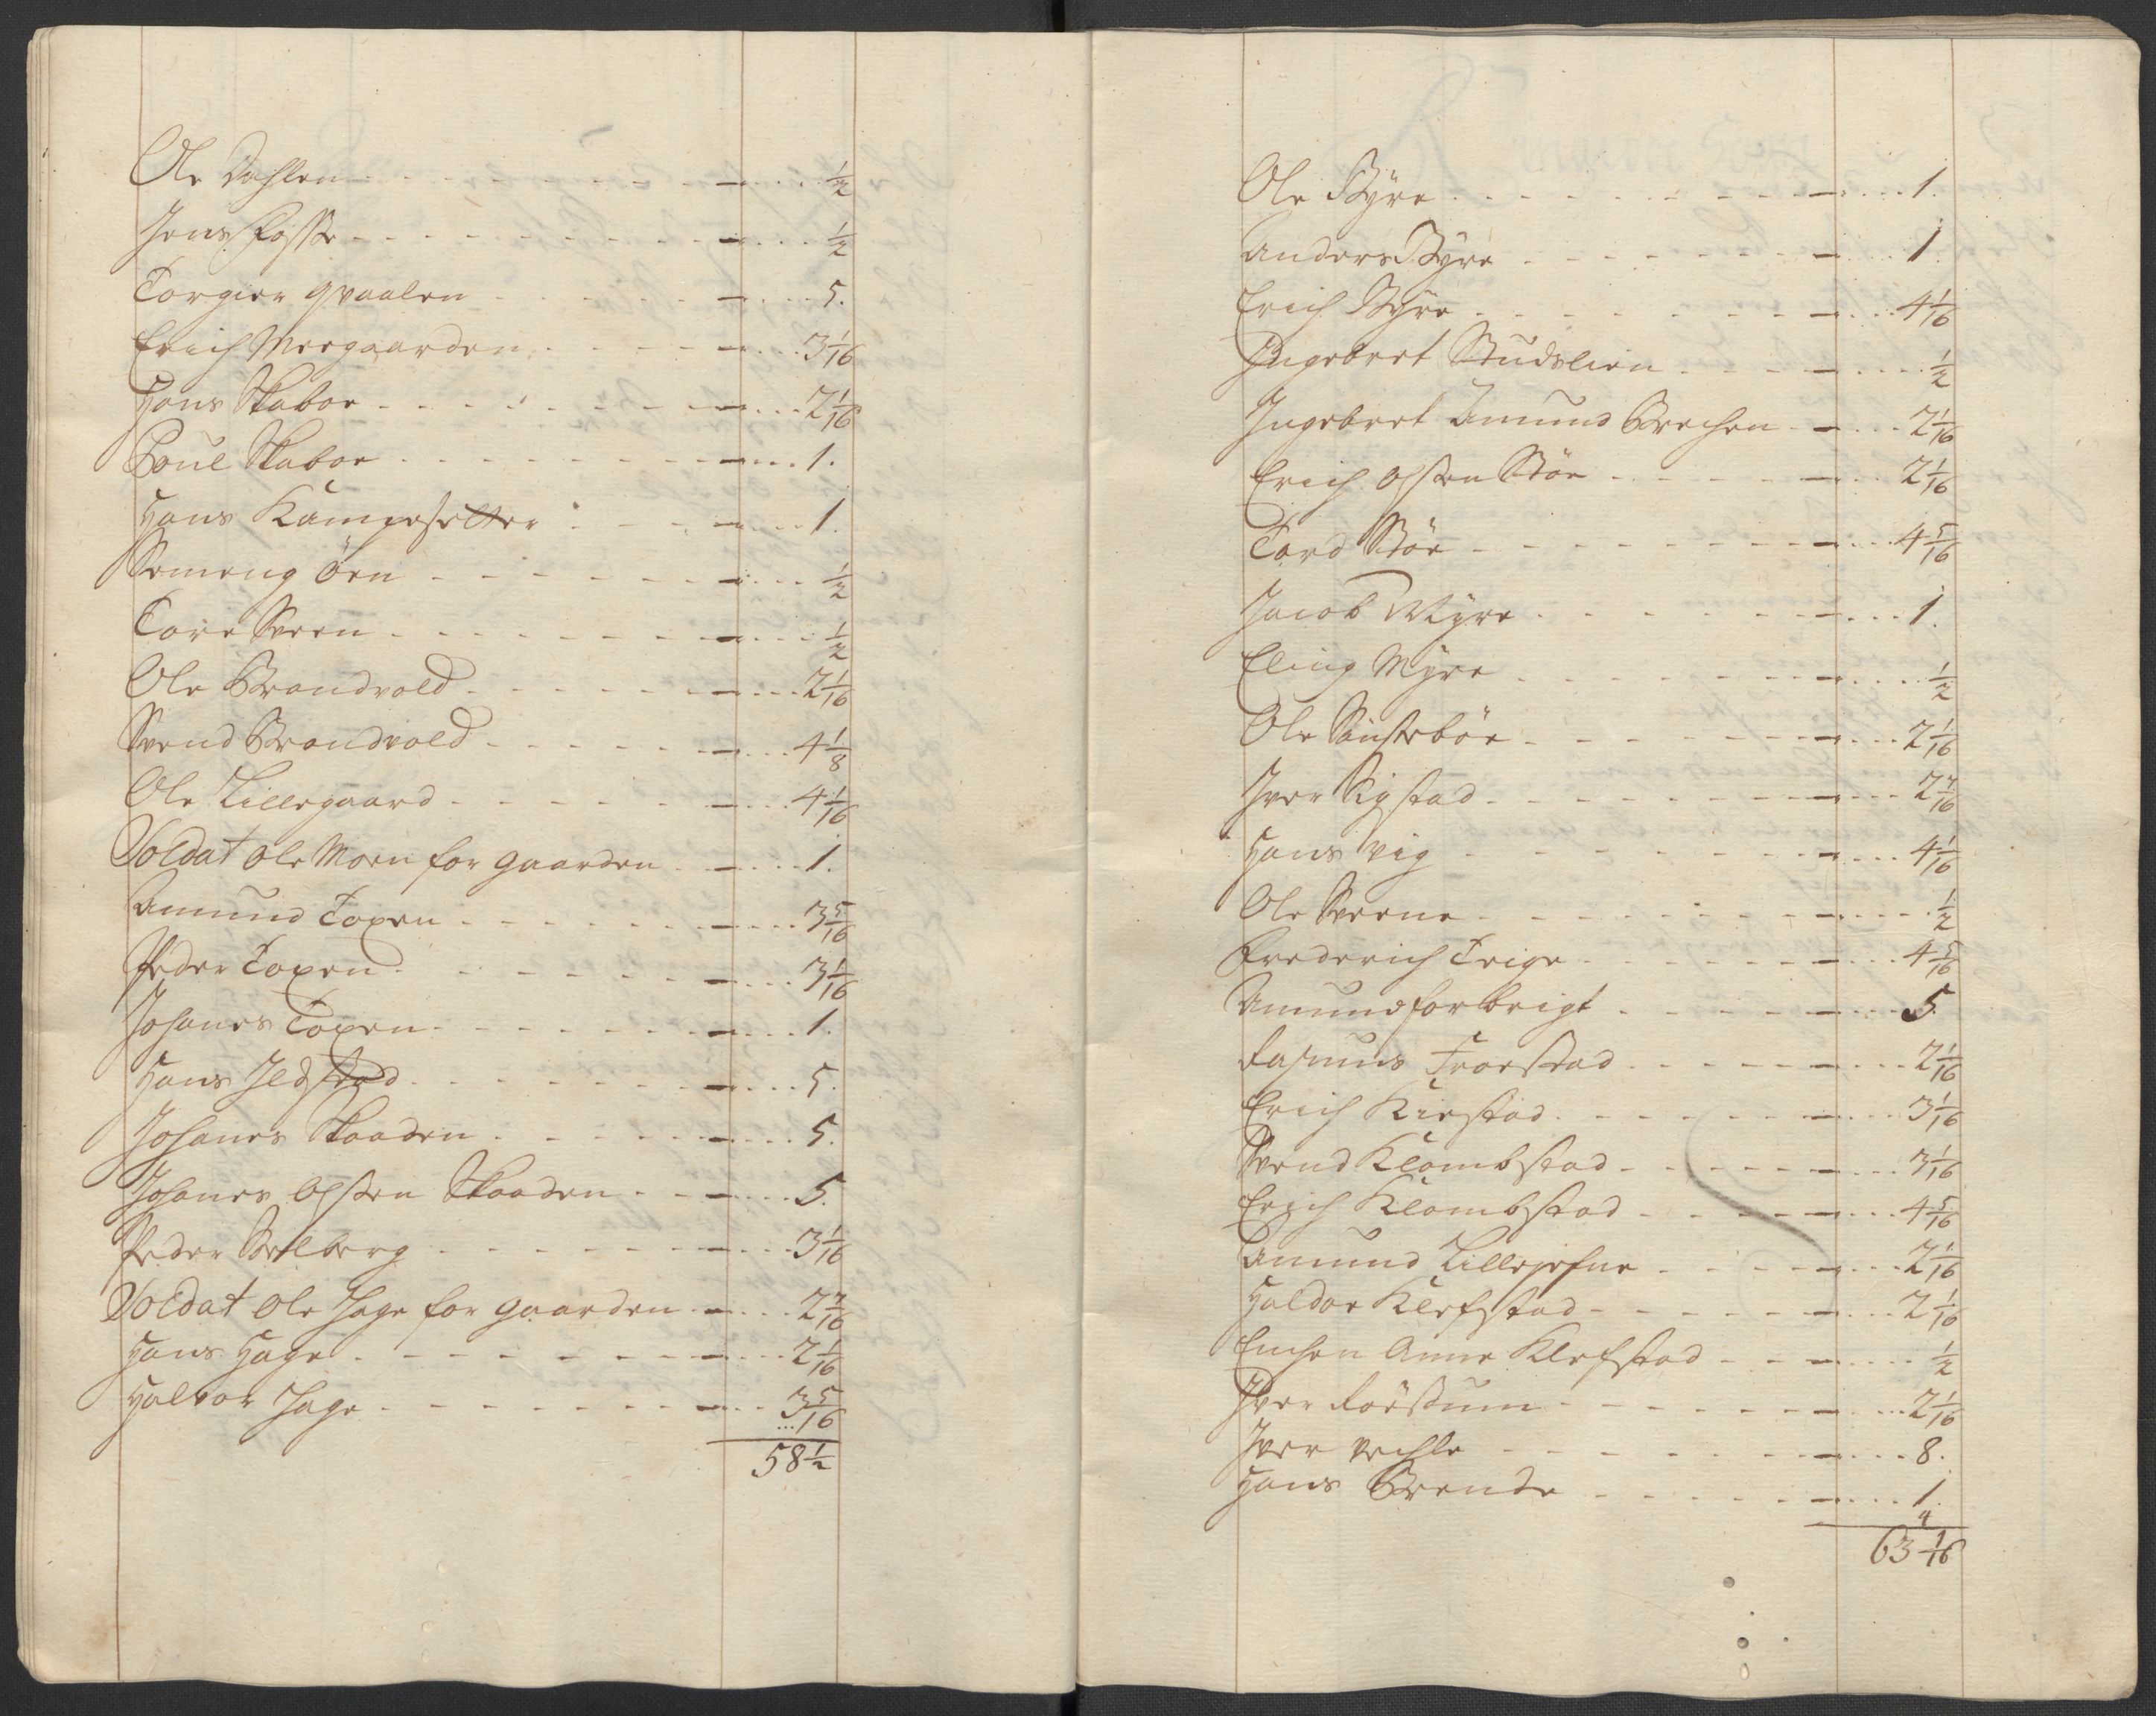 Ole Dahlen - - - - 1/2
Jens Fosse - - - - 1/2
Torgier Qvaalen - - - - 5.
Erich Moegaarden - - - - 3 1/16
Hans Skaboe - - - - 2 1/16
Poul Skaboe - - - - 1.
Hans Kampesetter - - - - 1.
Semeng Öen - - - - 1/2
Tore Sveen - - - - 1/2
Ole Brandvold - - - - 2 1/16
Svend Brandvold - - - - 4 1/8
Ole Lillegaard - - - - 4 1/16
Soldat Ole Moen for gaarden - - - - 1.
Amund Toxen - - - - 3 5/16
Peder Toxen - - - - 3 1/16
Johanes Toxen - - - - 1.
Hans Jldstad - - - - 5.
Johanes Skaaden - - - - 5.
Johanes Olsen Skaaden - - - - 5.
Peder Selberg - - - - 3 1/16
Soldat Ole Hage for gaarden - - - - 2 7/16
Hans Hage - - - - 2 1/16
Halvor Hage - - - - 3 5/16
58 1/2
Ole Byre - - - - 1.
Anders Byre - - - - 1.
Erich Byre - - - - 4 1/16
Jngebret Studslien - - - - 1/2
Jngebret Amund Brechen - - - - 2 1/16
Erich Olsen Böe - - - - 2 1/16
Tord Böe - - - - 4 5/16
Jacob Myre - - - - 1.
Eling Myre - - - - 1/2
Ole Sønstebøe - - - - 2 1/16
Jver Rigstad - - - - 2 7/16
Hans Vig - - - - 4 1/16
Ole Sveene - - - - 1/2
Frederich Teige - - - - 4 5/16
Amund forbrigt - - - - 5
Rasmus Froestad - - - - 2 1/16
Erich Kiestad - - - - 3 1/16
Svend Klombstad - - - - 3 1/16
Erich Klombstad - - - - 4 5/16
Amund Lillejefne - - - - 2 1/16
Haldor Klefstad - - - - 2 1/16
Enchen Anne Klefstad - - - - 1/2
Jver Röestum - - - - 2 1/16
Jver Vehle - - - - 8.
Hans Brende - - - - 1.
63 1/16